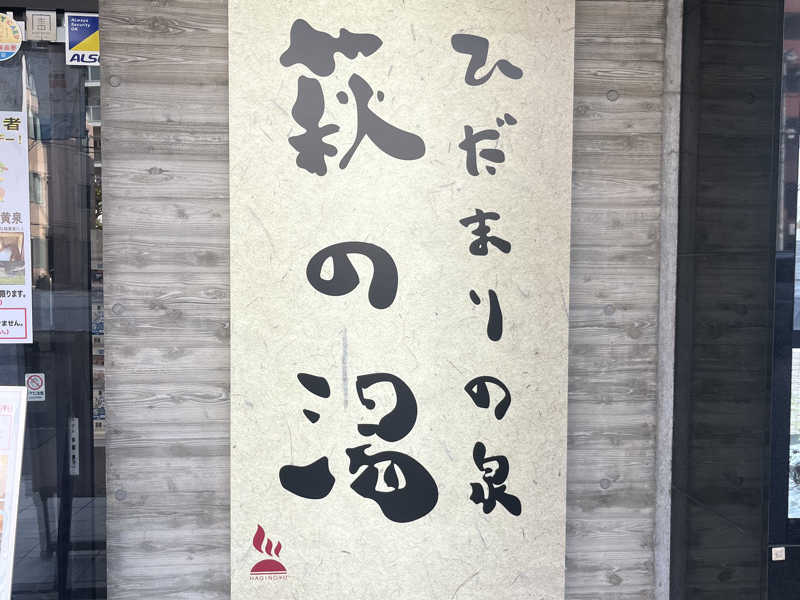 ひだまりの泉
萩の湯
HAGINOYU
Always
Security
OK
ALSO
者
黄泉
限ります。
ません。